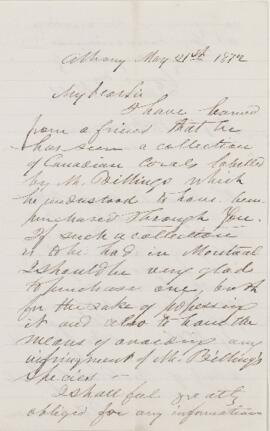 Albany May 21st 1872
My dear Sir
I have learned
from a friend that he
has seen a collection
of Canadian corals labelled
by Mr. Billings which
he understood to have been
purchased through you.
If such a collection
is to be had in Montreal
I should be very glad
to purchase one, both
for the sake of possessing
it and also to have the
means of avoiding any
infringement of Mr. Billings
species —
I shall feel greatly
obliged for any information